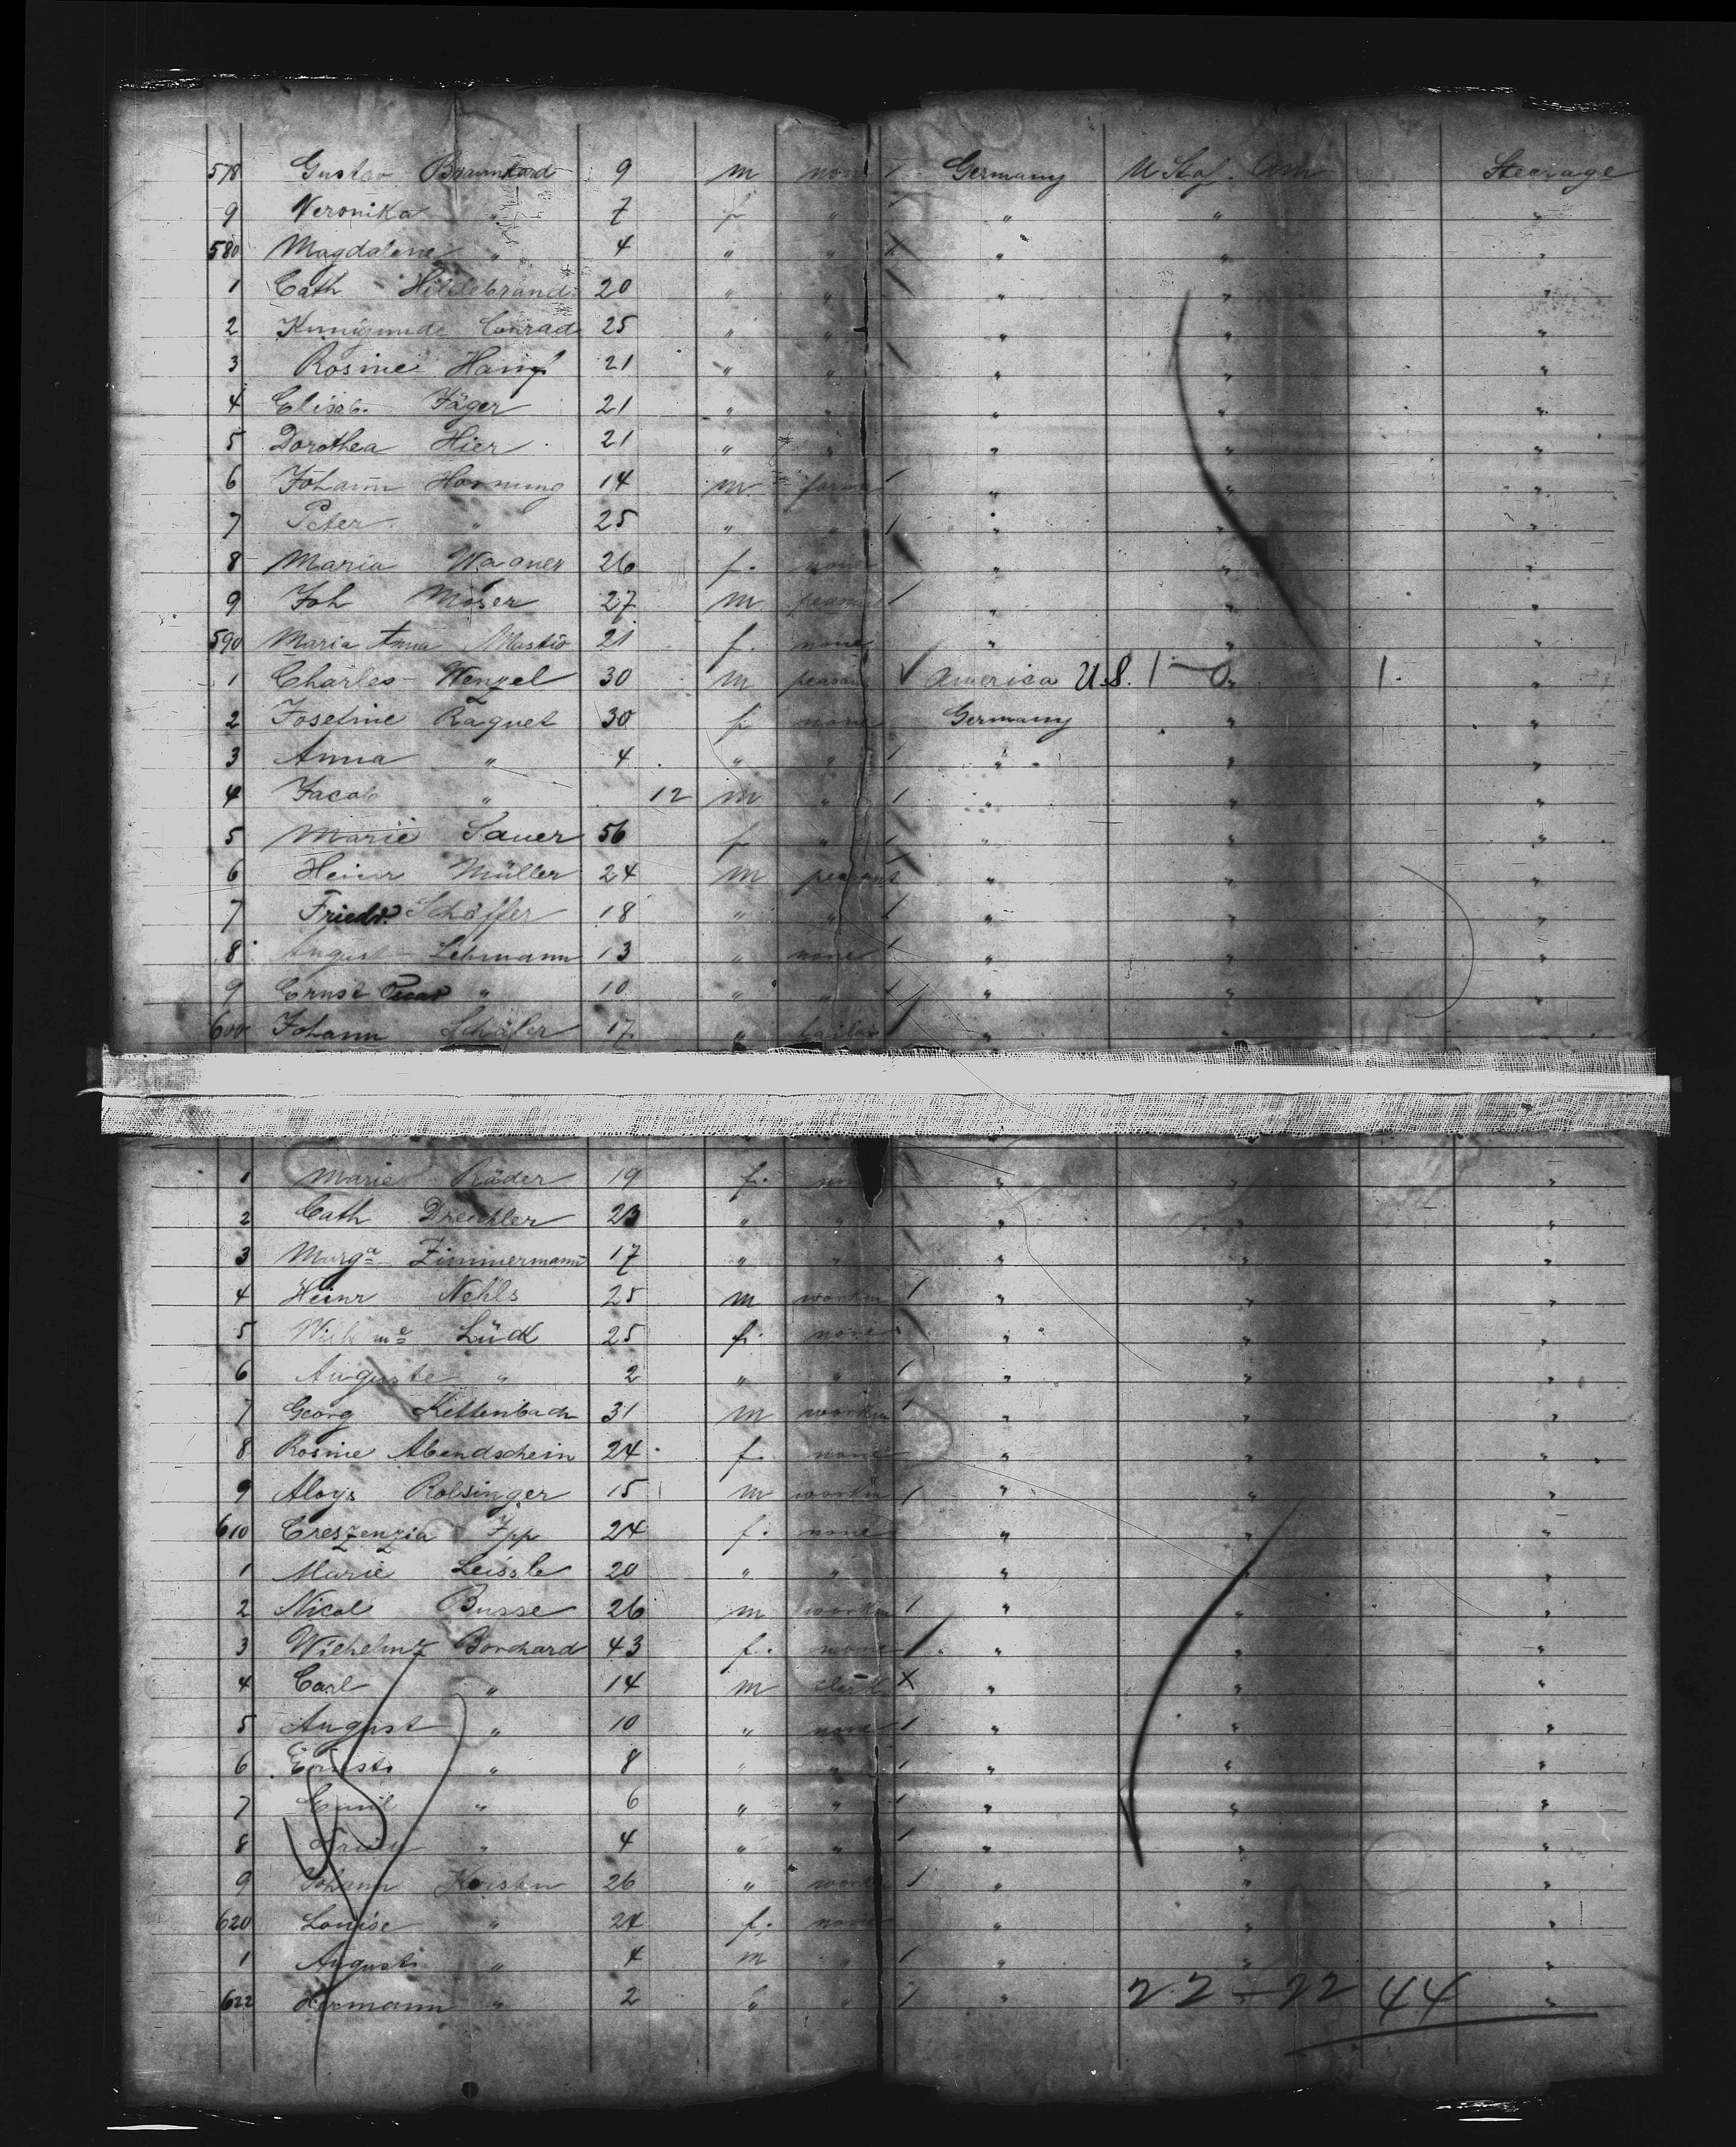 578 Gustav 9 m none Germany U Staf. Am Steerage
9 Veronika " 7 f " " " "
580 Magdalene " 4 " " " " "
1 Cath Hildebrand 20 " " " " "
2 Kunigunde Conrad 25 " " " " "
3 Rosine 21 " " " " "
4 Elisab. Jäger 21 " " " " "
5 Dorothea Hier 21 " " " " "
6 Johann Hornung 14 m farm " " "
7 Peter " 25 " " " " "
8 Maria Wagner 26 f. none " " "
9 Joh Moser 27 m peasant " " "
590 Maria Anna 21 f. none " " "
1 Charles Wenzel 30 m peasant America U.S. 1 — 0 " 1. "
2 Josefine Raquet 30 f none Germany " "
3 Anna " 4 " " " " "
4 Jacob " 12 m " " " "
5 Marie Sauer 56 f " " " "
6 Heinr Müller 24 m peasant " " "
7 Friedr. Schäffer 18 " " " " "
8 August Lehmann 13 " none " " "
9 Ernst Oscar " 10 " " " " "
600 Johann Schäfer 17 " tailor " " "
1 Marie Räder 19 f. non " " "
2 Cath Dreichler 23 " " " " "
3 Marga Zimmermann 17 " " " " "
4 Heinr Nehls 25 m workm " " "
5 Wilhme Lück 25 f. none " " "
6 Auguste " 2 " " " " "
7 Georg Kettenbach 31 m workm " " "
8 Rosine Abendschein 24 f. none " " "
9 Aloys Rolsinger 15 m workm " " "
610 Creszenzia Ipp 24 f. none " " "
1 Marie Leissle 20 " " " " "
2 Nicol Busse 26 m workm " " "
3 Borchard 43 f. none " " "
4 Carl " 14 m clerk X " " "
5 August " 10 " none " " "
6 " 8 " " " " "
7 Emil " 6 " " " " "
8 " 4 " " " " "
9 Johann 26 " work " " "
620 Louise " 24 f. none " " "
1 August " 4 m " " " "
622 Hermann " 2 " " " 22 — 22 44 "